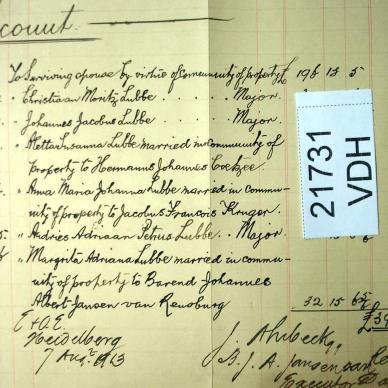 count.
To Surviving spouse by virtue of community of property ½ 196 13 5
" Christiaan Moritz Lubbe . . . . Major.
" Johannes Jacobus Lubbe . . . . Major.
" Aletta Susanna Lubbe married in community of
property to Hermanus Johannes Coetzee.
" Anna Maria Johanna Lubbe married in commu-
nity of property to Jacobus Francois Kruger.
" Andries Adriaan Petrus Lubbe . . Major
" Margrita Adriana Lubbe married in commu-
nity of property to Barend Johannes
Albert Jansen van Rensburg 32 15 6
£39
E & O.E.
Heidelberg
7 Augt 1913
J. Ahrbeck qq
B. J. A. Jansen van
Executor
21731
VDH